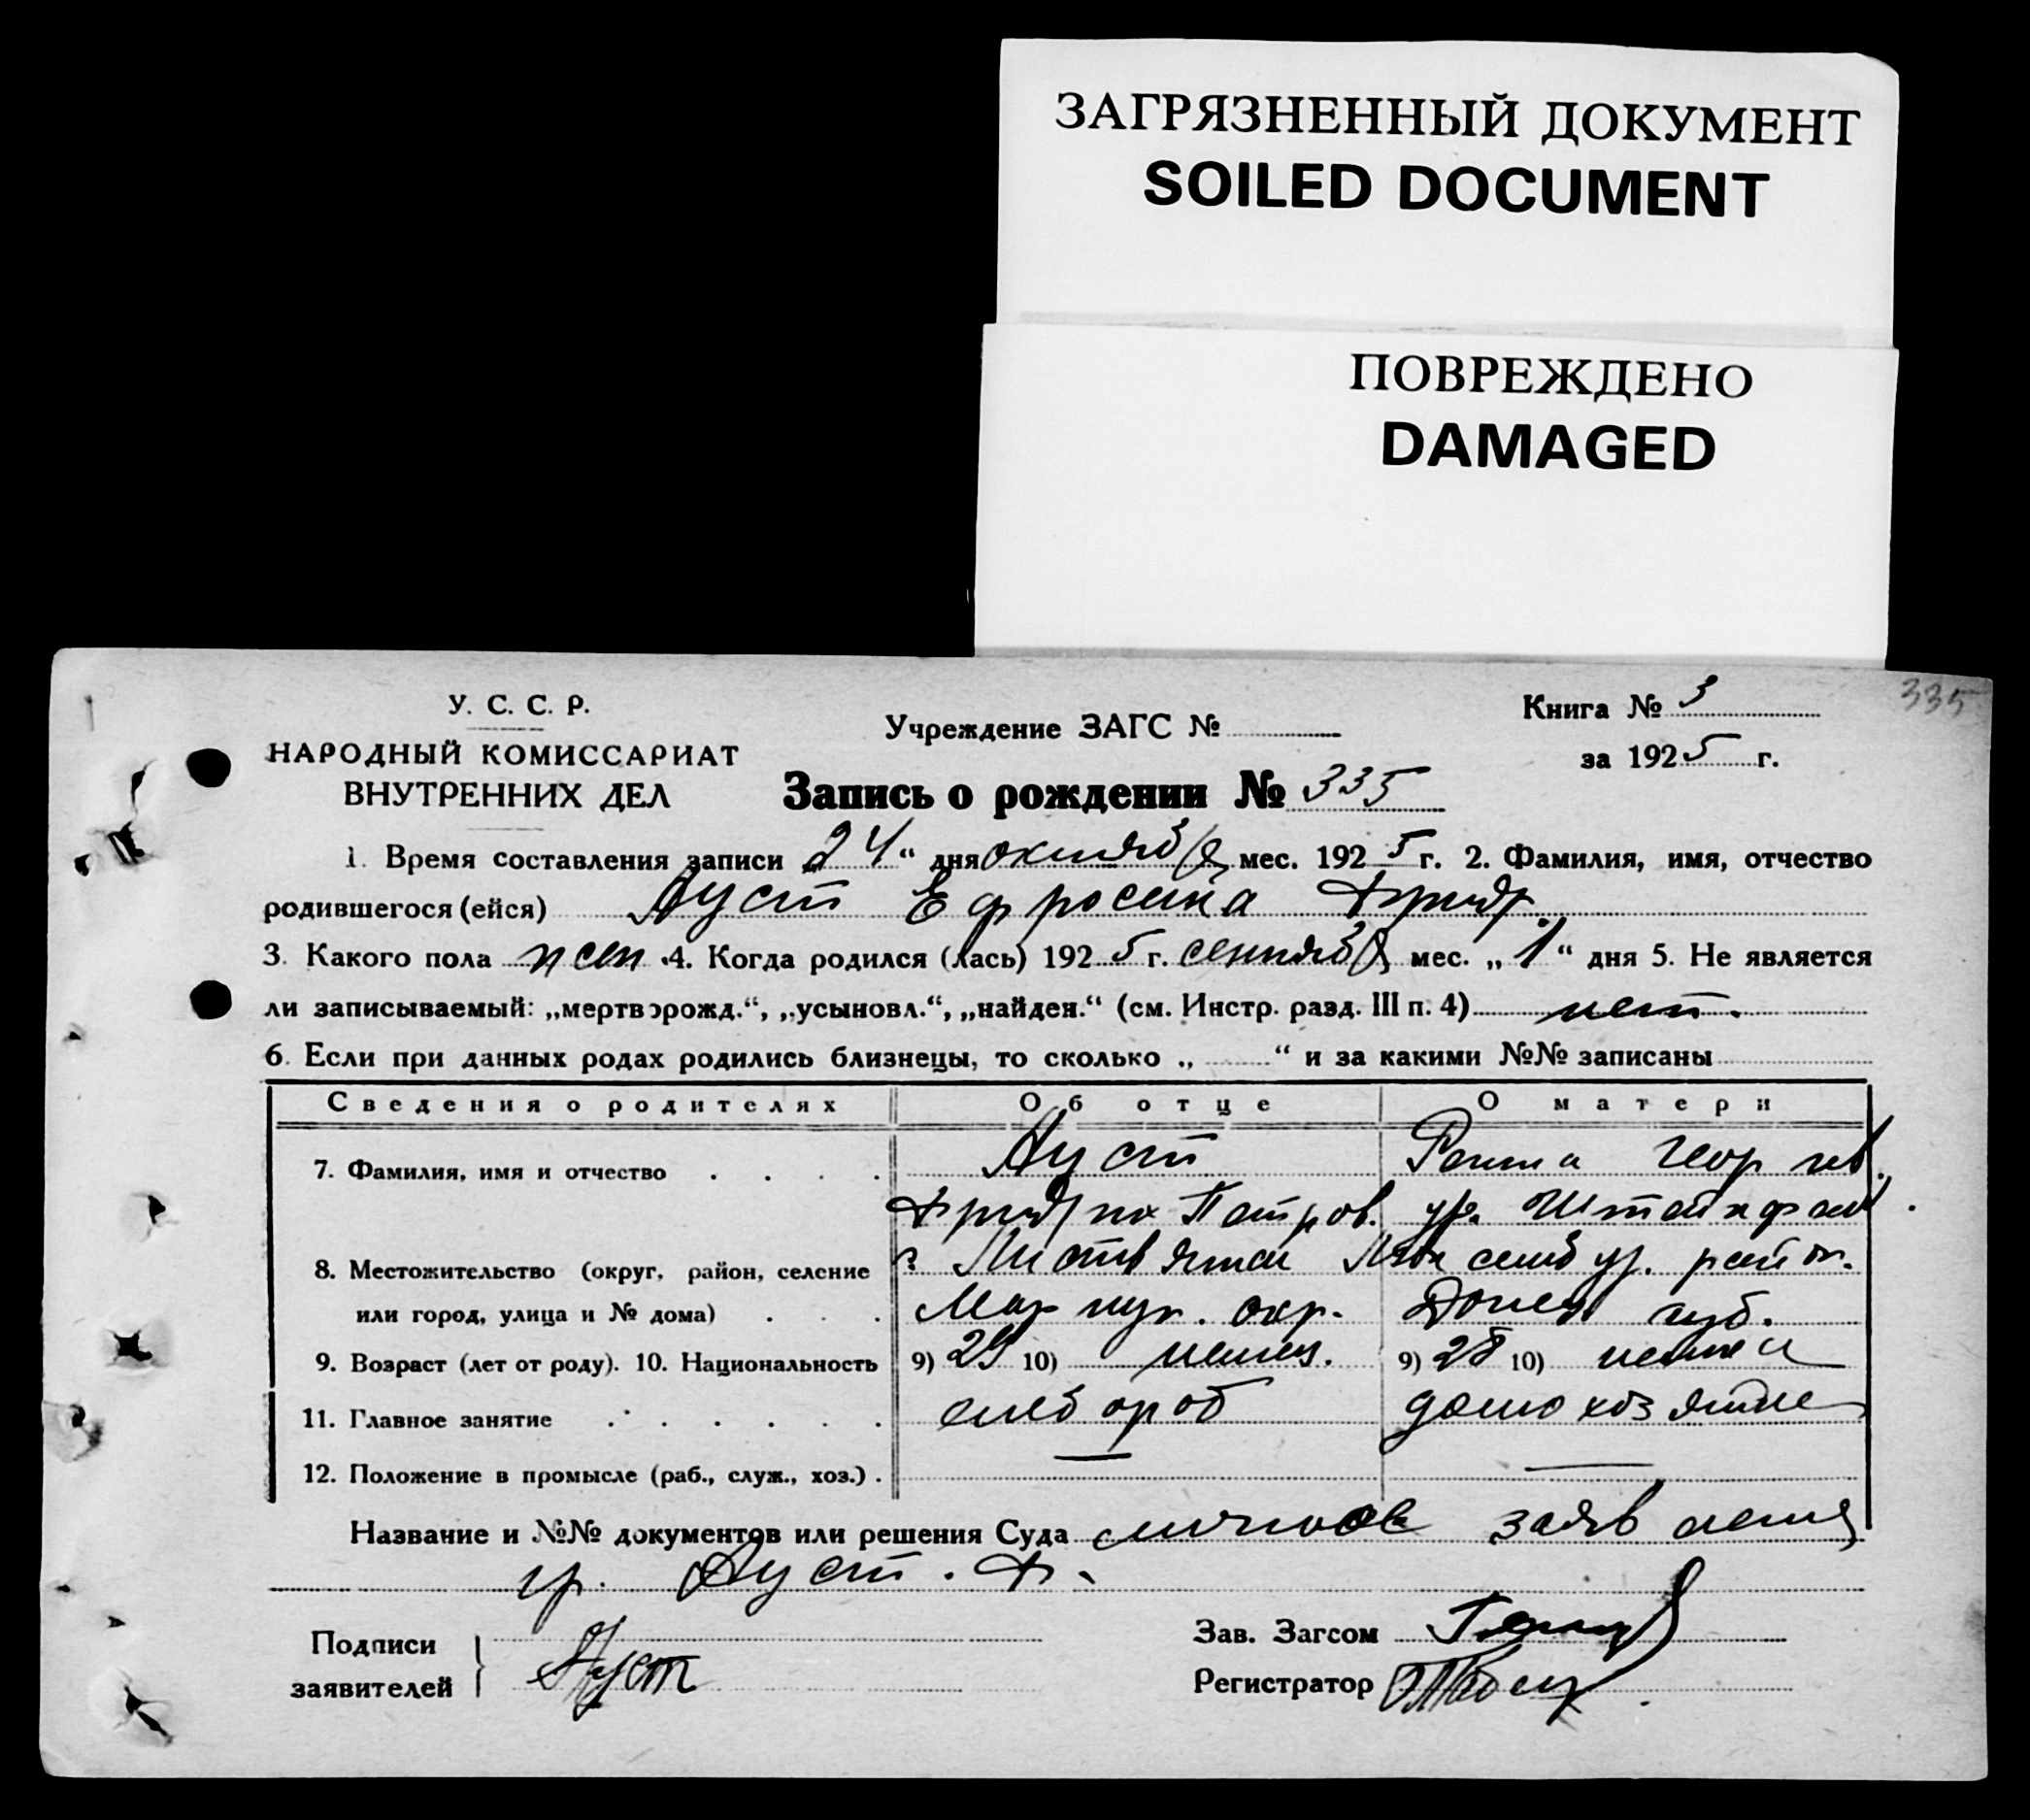 ЗАГРЯЗНЕННЫЙ ДОКУМЕНТ
SOILED DOCUMENT
ПОВРЕЖДЕНО
DAMAGED
335
У. С. С. Р.
НАРОДНЫЙ КОМИССАРИАТ
ВНУТРЕННИХ ДЕЛ
Учреждение ЗАГС №
Книга № 3
за 1925 г.
Запись о рождении № 335
1. Время составления записи 24 “ дня октября мес. 1925 г. 2. Фамилия, имя, отчество
родившегося (ейся) Ауст Ефросина Фридр.
3. Какого пола жен. 4. Когда родился (лась) 1925 г. сентября мес. „ 1 “ дня 5. Не является
ли записываемый: „мертворожд.“, „усыновл.“, „найден.“ (см. Инстр. разд. III п. 4) нет.
6. Если при данных родах родились близнецы, то сколько „ “ и за какими №№ записаны
Сведения о родителях Об отце О матери
7. Фамилия, имя и отчество Ауст Георгиев.
Фридрих Петров. ур.
8. Местожительство (округ, район, селение район.
или город, улица и № дома) Мариуп. окр. Донец губ.
9. Возраст (лет от роду). 10. Национальность 9) 29 10) немец. 9) 28 10) немка
11. Главное занятие хлебороб домохозяйка
12. Положение в промысле (раб., служ., хоз.) — —
Название и №№ документов или решения Суда личное заявление
гр. Ауст. Ф.
Подписи
заявителей Ауст
Зав. Загсом
Регистратор